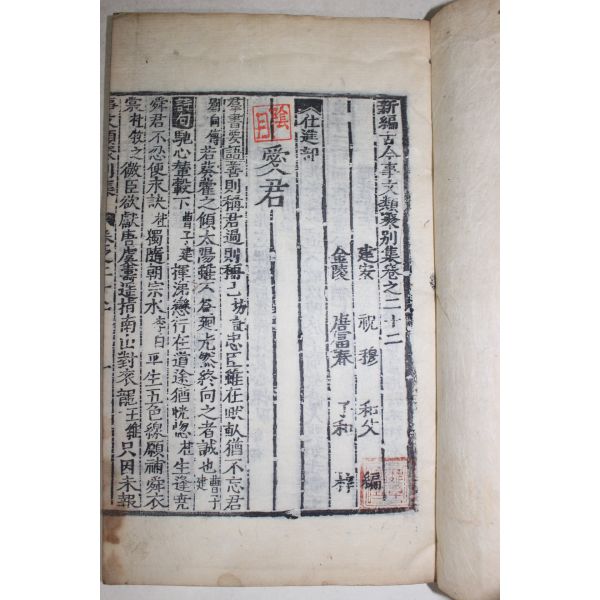 新編古今事文類聚別集卷之二十二
建安 祝穆 和父 編
金陵 唐富春 子和 梓
仕進部
愛君
羣書要語善則稱君過則稱己坊記忠臣雖在畎畝猶不忘君
劉向傳若葵藿之傾太陽雖不為廻光然終向之者誠也曹子建
詩句馳心輦轂下曹子建揮涕戀行在道途猶恍惚杜生逢堯
舜君不忍便永訣杜獨隨朝宗水李白平生五色線願補舜衣
裳杜牧之微臣欲獻唐虞壽遥指南山對衮龍王維只因未報